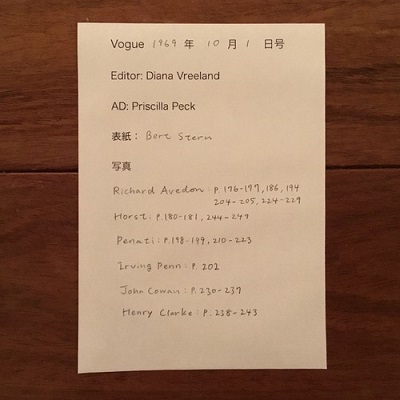 Vogue 1969 年 10 月 1 日号
Editor: Diana Vreeland
AD: Priscilla Peck
表紙： Bert Stern
写真
Richard Avedon : P.176-177, 186, 194
204-205, 224-229
Horst : P.180-181, 244-249
Penati : P.198-199, 210-223
Irving Penn : P.202
John Cowan : P.230-237
Henry Clarke : P.238-243